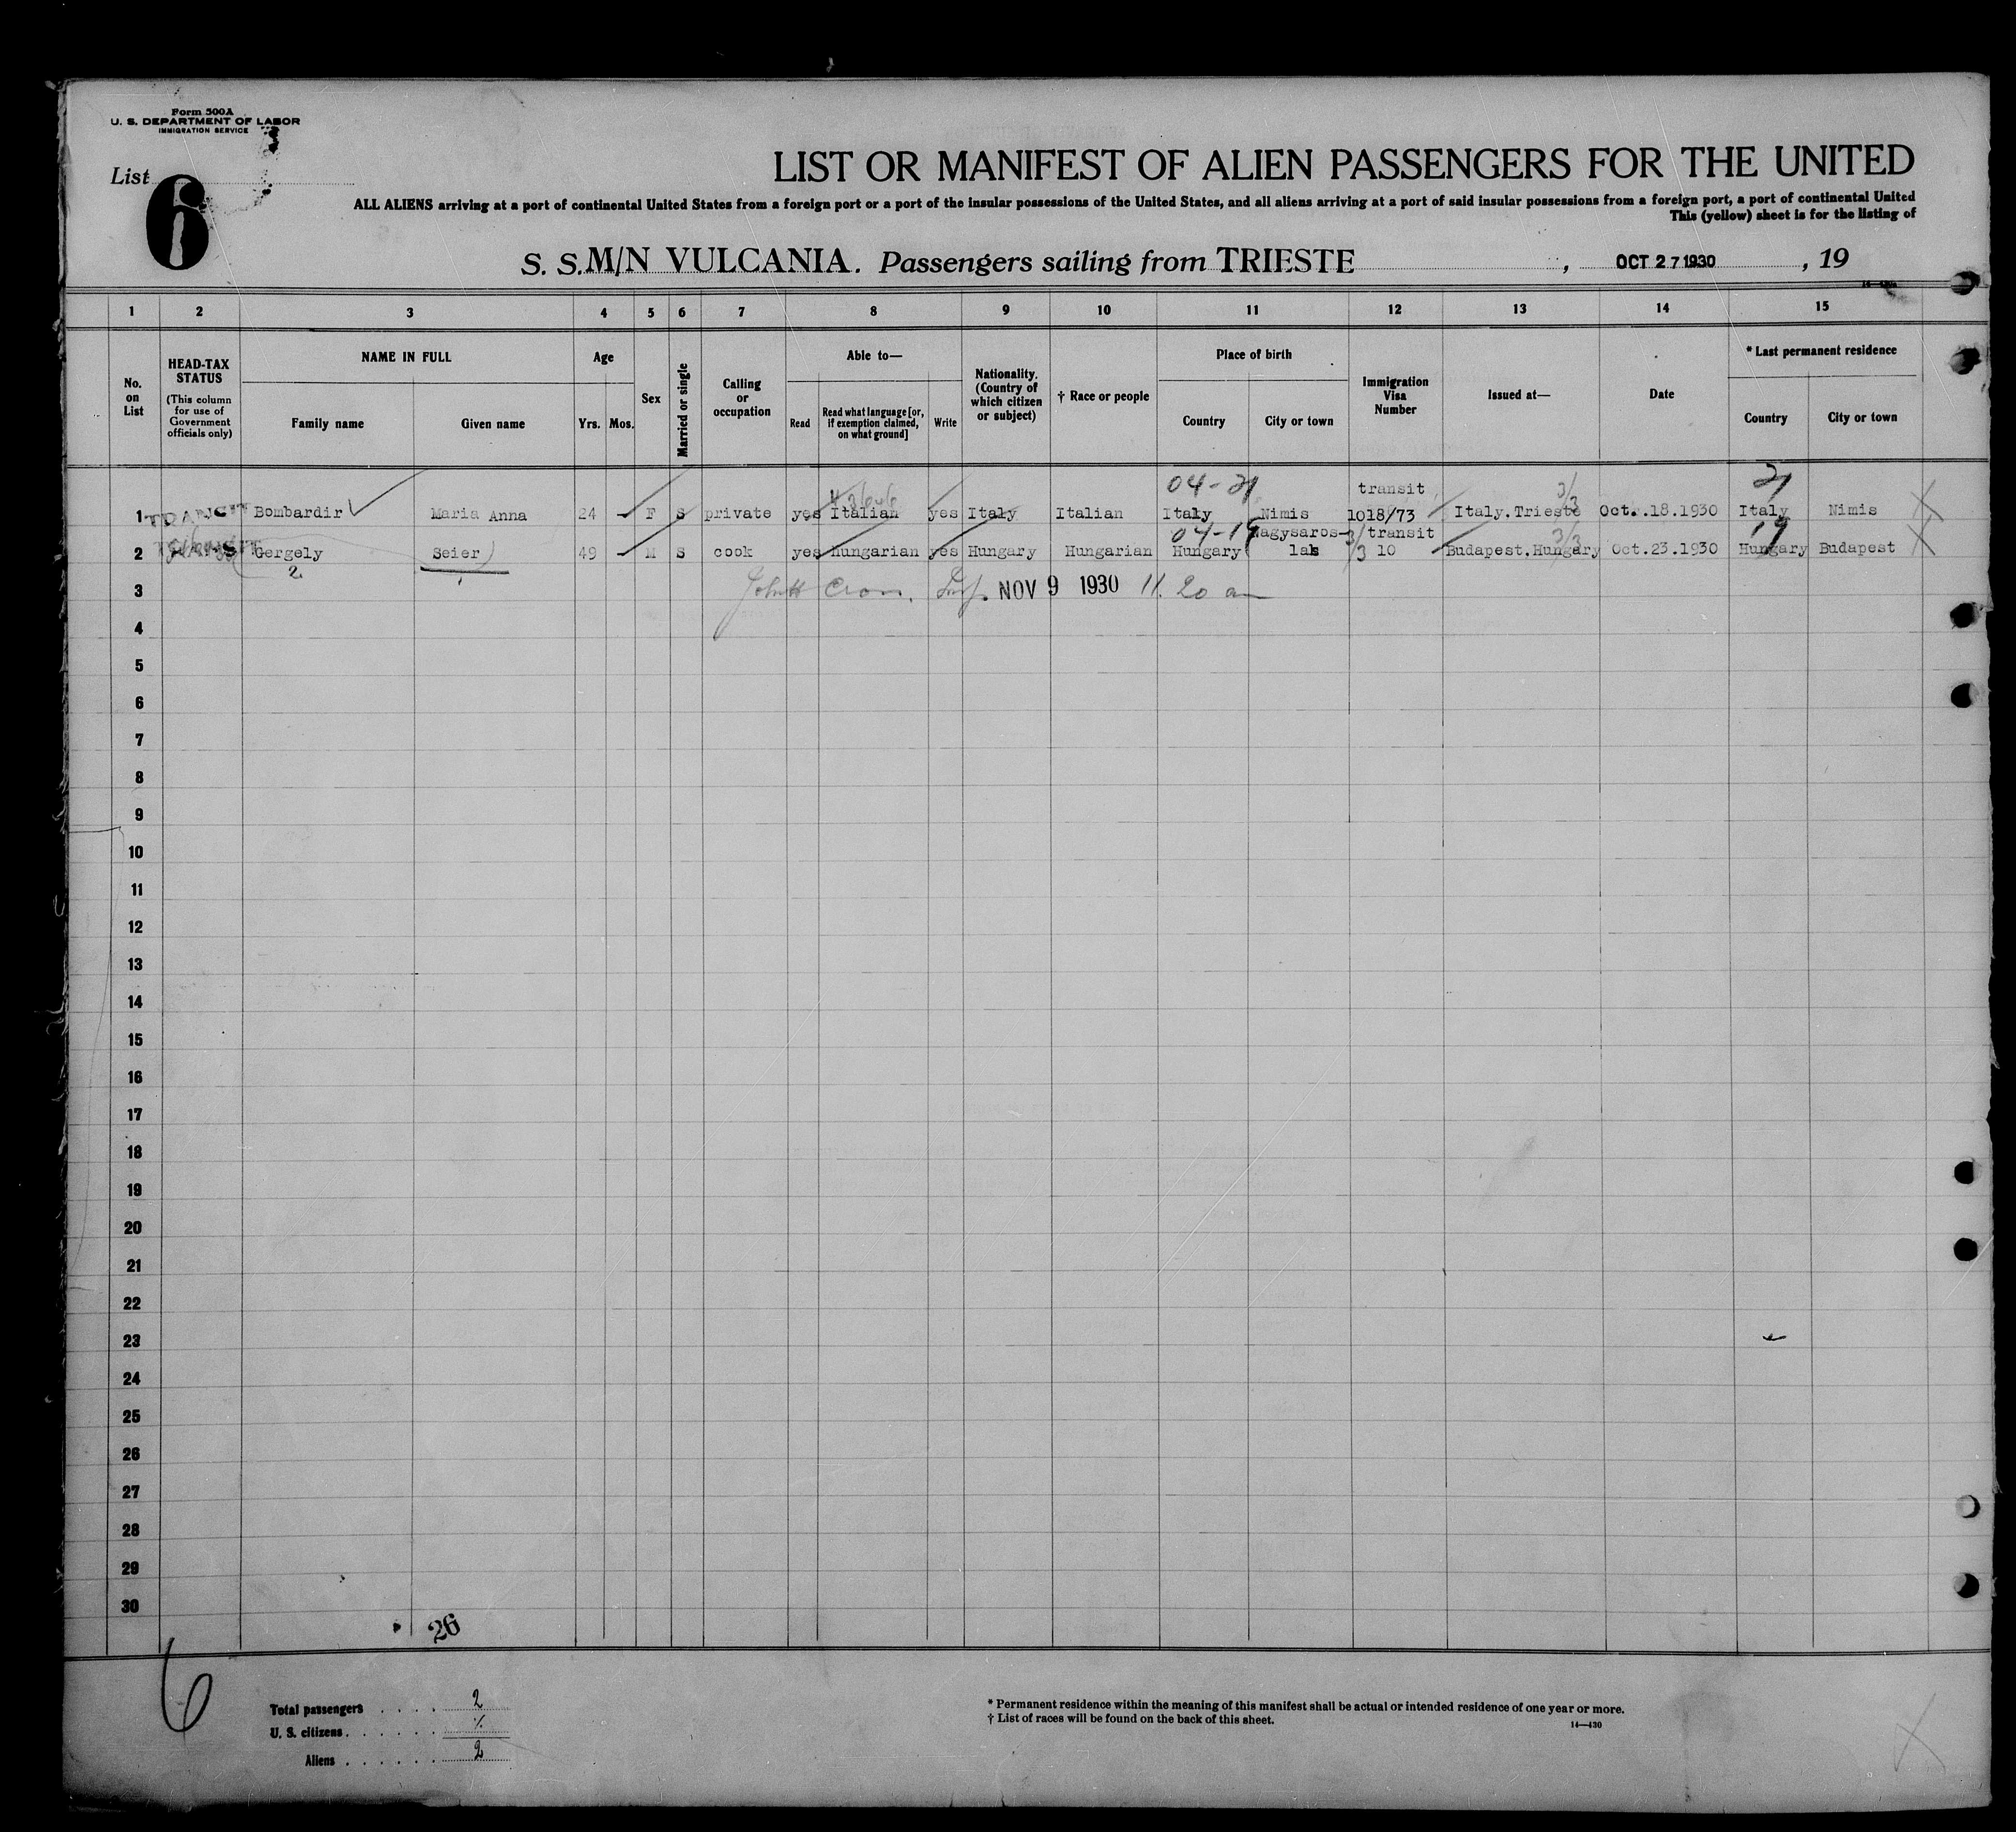 Form 500A
U. S. DEPARTMENT OF LABOR
IMMIGRATION SERVICE
3
List
6
LIST OR MANIFEST OF ALIEN PASSENGERS FOR THE UNITED
ALL ALIENS arriving at a port of continental United States from a foreign port or a port of the insular possessions of the United States, and all aliens arriving at a port of said insular possessions from a foreign port, a port of continental United
This (yellow) sheet is for the listing of
S. S. M/N VULCANIA. Passengers sailing from TRIESTE , OCT 27 1930 , 19
1 2 3 4 5 6 7 8 9 10 11 12 13 14 15
No. on List
HEAD-TAX STATUS
(This column for use of Government officials only)
NAME IN FULL
Family name Given name
Age
Yrs. Mos.
Sex
Married or single
Calling or occupation
Able to—
Read Read what language [or, if exemption claimed, on what ground] Write
Nationality. (Country of which citizen or subject)
† Race or people
Place of birth
Country City or town
Immigration Visa Number
Issued at—
Date
* Last permanent residence
Country City or town
04-21 transit 3/3 21
1 TRANSIT Bombardir Maria Anna 24 F S private yes Italian yes Italy Italian Italy Nimis 1018/73 Italy.Trieste Oct.18.1930 Italy Nimis
04-19 Nagysaros- 3/3 transit 3/3 19
2 TRANSIT Gergely Seier 49 M S cook yes hungarian yes Hungary Hungarian Hungary lak 10 Budapest.Hungary Oct.23.1930 Hungary Budapest
2
3 John H Insp. NOV 9 1930 11.20 am
4
5
6
7
8
9
10
11
12
13
14
15
16
17
18
19
20
21
22
23
24
25
26
27
28
29
30
26
6
Total passengers . . . . 2
U. S. citizens . . . . . .
Aliens . . . . . . 2
* Permanent residence within the meaning of this manifest shall be actual or intended residence of one year or more.
† List of races will be found on the back of this sheet.
14—430